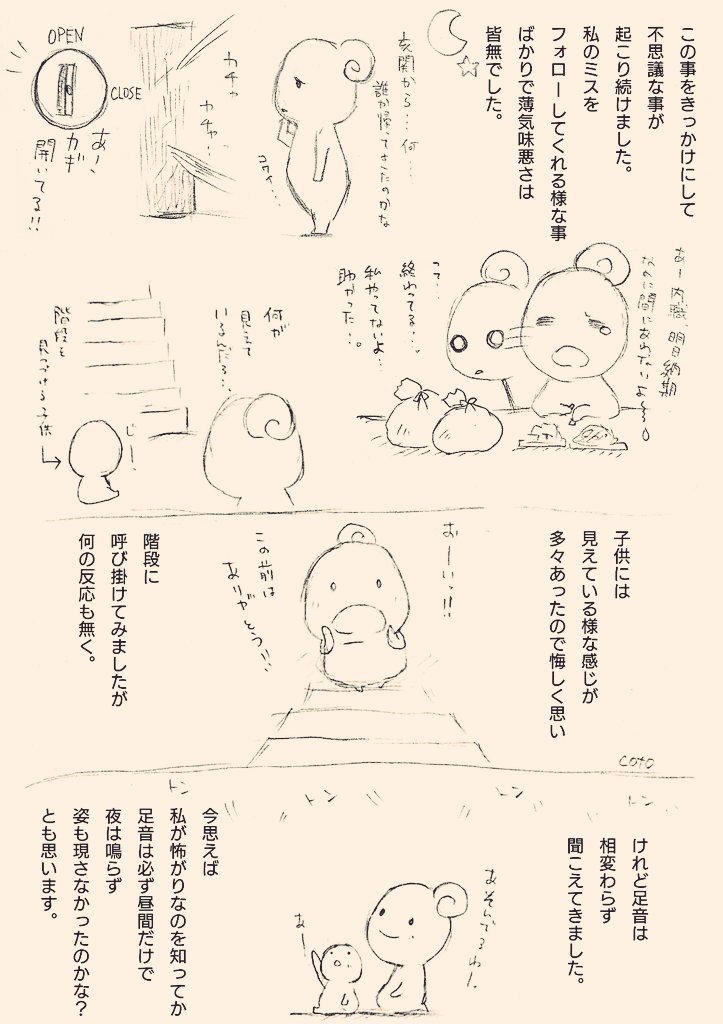 この事をきっかけにして
不思議な事が
起こり続けました。
私のミスを
フォローしてくれる様な事
ばかりで薄気味悪さは
皆無でした。
玄関から…何…
誰か帰ってきたのかな
コワイ…
カチャ
カチャ…
OPEN
CLOSE
あー、
カギ
開いてる!!
あー内職、明日納期
なのに間にあわないよ〜
って…
終わってる…。
私やってないよ…
助かった…。
何が
見えて
いるんだろ…。
じー…
階段を
見つける子供
子供には
見えている様な感じが
多々あったので悔しく思い
おーいっ!!
この前は
ありがとう!!
階段に
呼び掛けてみましたが
何の反応も無く。
coto
トン
トン
トン
トン
けれど足音は
相変わらず
聞こえてきました。
あそんでるわ。
あー
今思えば
私が怖がりなのを知ってか
足音は必ず昼間だけで
夜は鳴らず
姿も現さなかったのかな?
とも思います。